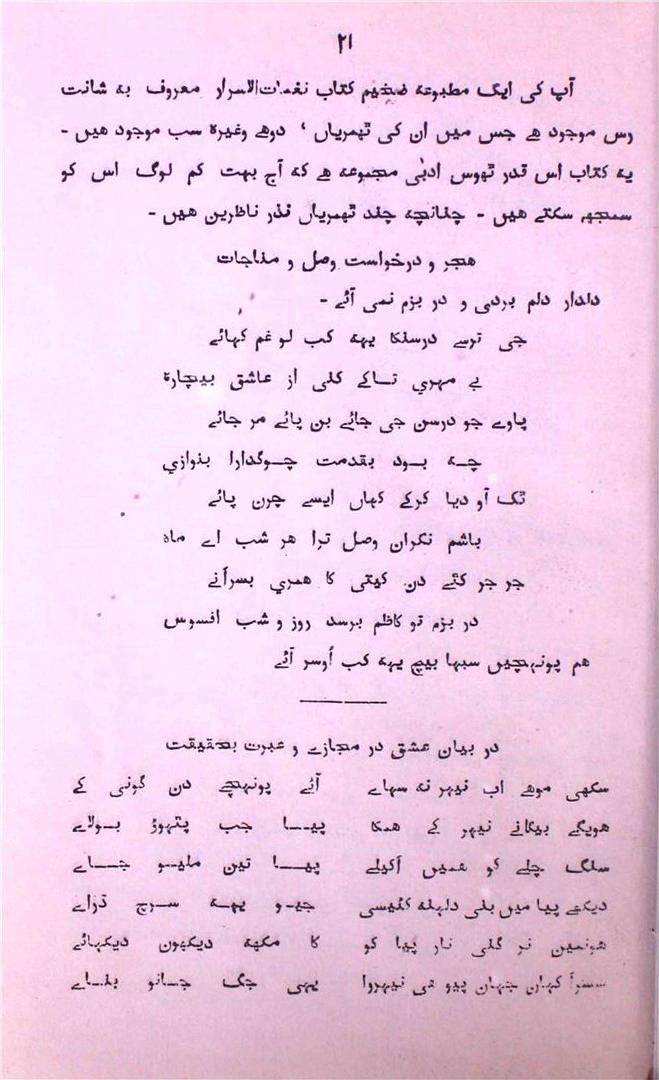 ۲۱
آپ کی ایک مطبوعہ ضخیم کتاب نغمات‌الاسرار معروف بہ شانت
رس موجود ہے جس میں ان کی ٹھمریاں ‘ دوہے وغیرہ سب موجود ہیں -
یہ کتاب اس قدر ٹھوس ادبی مجموعہ ہے کہ آج بہت کم لوگ اس کو
سمجھ سکتے ہیں - چنانچہ چند ٹھمریاں نذر ناظرین ہیں -
ہجر و درخواست وصل و مناجات
دلدار دلم بردی و در بزم نمی آئے -
جی ترسے درسنکا یہہ کب لو غم کھائے
بے مہری تاکے کنی از عاشق بیچارہ
پاوے جو درسن جی جائے بن پائے مر جائے
چہ بود بقدمت چوگدارا بنوازی
ٹک آو دیا کرکے کہاں ایسے چرن پائے
باشم نگران وصل ترا ہر شب اے ماہ
جر جر کٹے دن کہتی کا ہمری بسرآنے
در بزم تو کاظم برسد روز و شب افسوس
ہم پونہچیں سبھا بیچ یہہ کب اُوسر آئے
در بیان عشق در مجازے و عبرت بحقیقت
سکھی موہے اب نیہر نہ سہاے آئے پونہچے دن گونی کے
ہویگے بیگانے نیہر کے ہمکا پیا جب پتھوڑ بولاے
سنگ چلے کو ہمیں اکیلے پیا تین ملیو جاے
دیکہے پیا میں بنی دلہنہ کئیسی جیو یہہ سوچ ڈراے
ہونمین نر گنی نار پیا کو کا مکھہ دیکھون دیکھائے
سسرا کہان جہان پیو ہی نیہروا یہی جگ جانو بناے